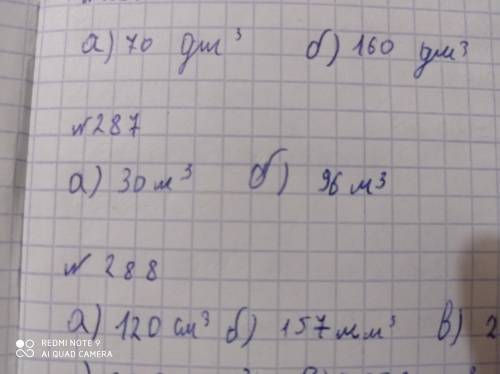 а) 70 дм³ б) 160 дм³
№287
а) 30 м³ б) 96 м³
№ 288
а) 120 см³ б) 157 мм³ в) 2
REDMI NOTE 9
AI QUAD CAMERA